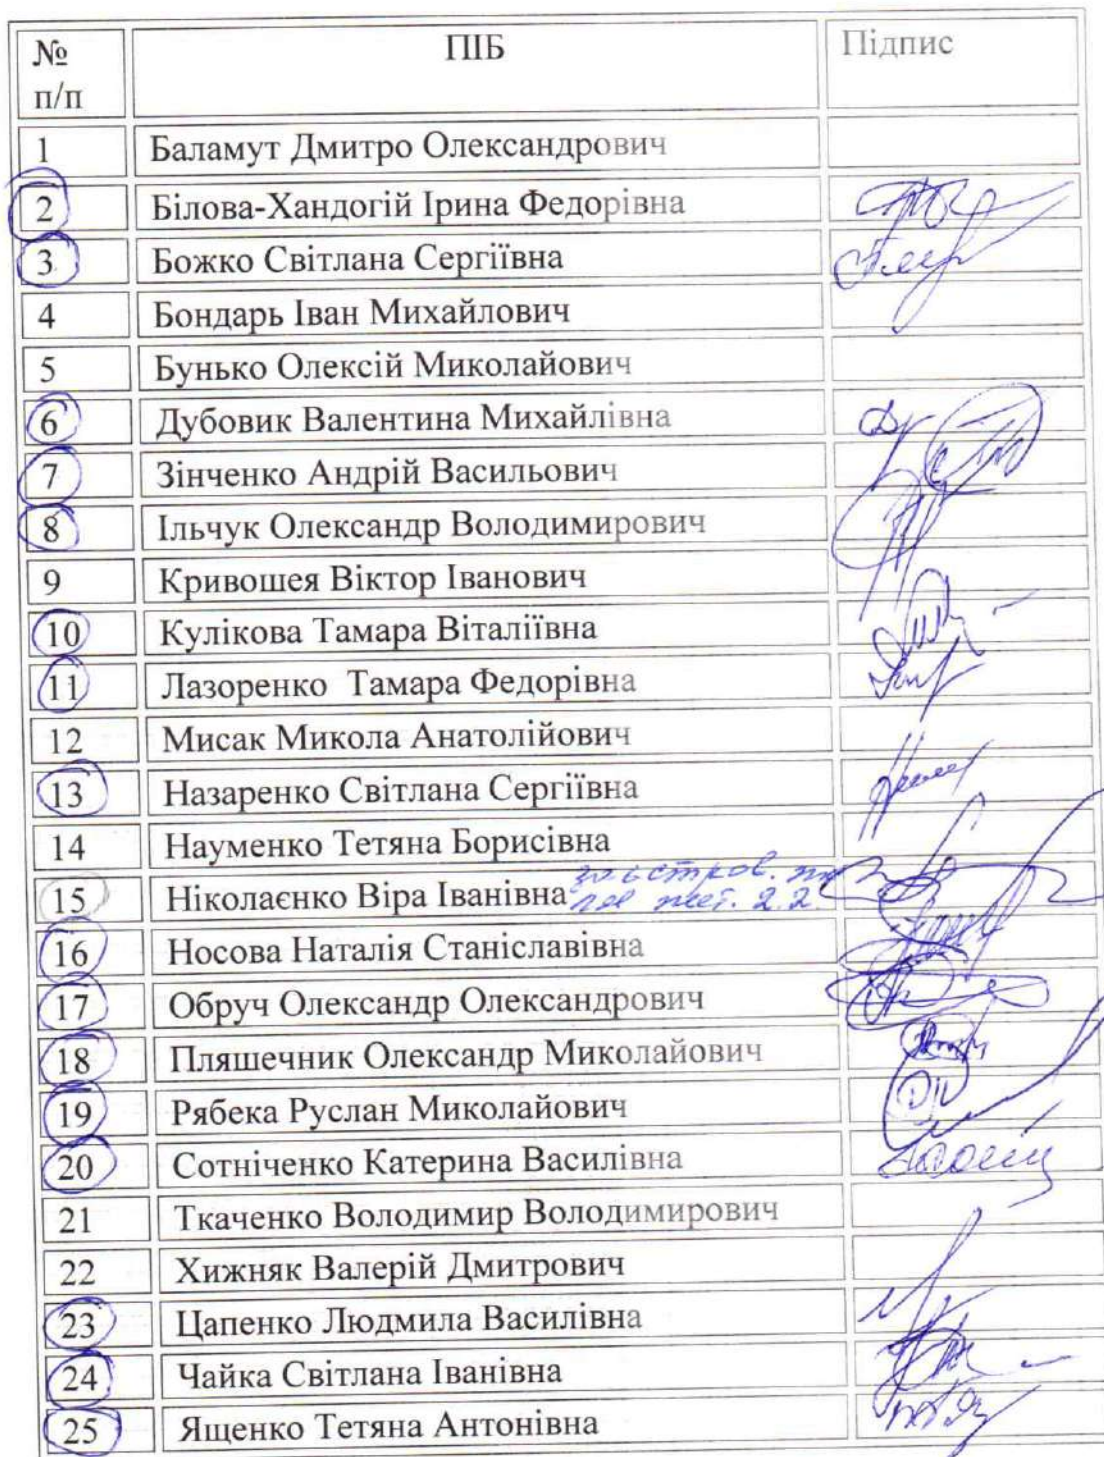 № п/п ПІБ Підпис
1 Баламут Дмитро Олександрович
2 Білова-Хандогій Ірина Федорівна
3 Божко Світлана Сергіївна
4 Бондарь Іван Михайлович
5 Бунько Олексій Миколайович
6 Дубовик Валентина Михайлівна
7 Зінченко Андрій Васильович
8 Ільчук Олександр Володимирович
9 Кривошея Віктор Іванович
10 Кулікова Тамара Віталіївна
11 Лазоренко Тамара Федорівна
12 Мисак Микола Анатолійович
13 Назаренко Світлана Сергіївна
14 Науменко Тетяна Борисівна
15 Ніколаєнко Віра Іванівна
16 Носова Наталія Станіславівна
17 Обруч Олександр Олександрович
18 Пляшечник Олександр Миколайович
19 Рябека Руслан Миколайович
20 Сотніченко Катерина Василівна
21 Ткаченко Володимир Володимирович
22 Хижняк Валерій Дмитрович
23 Цапенко Людмила Василівна
24 Чайка Світлана Іванівна
25 Ященко Тетяна Антонівна